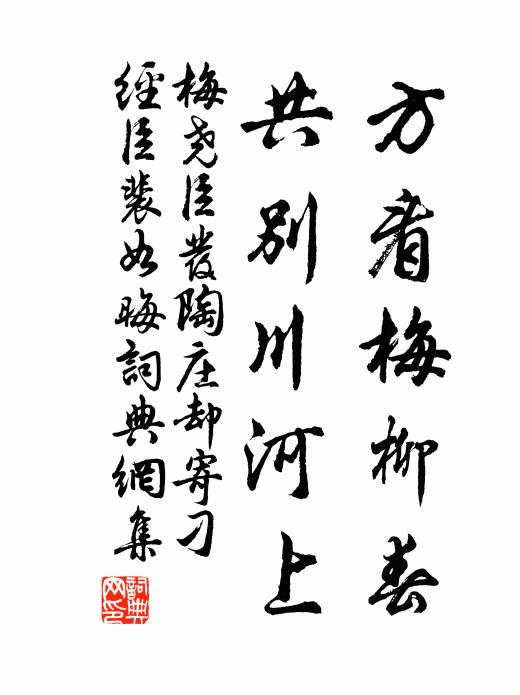 方看梅柳春
共別川河上
梅堯臣發陶庄却寄刁
經臣裴如晦詞典網集
詞典網印